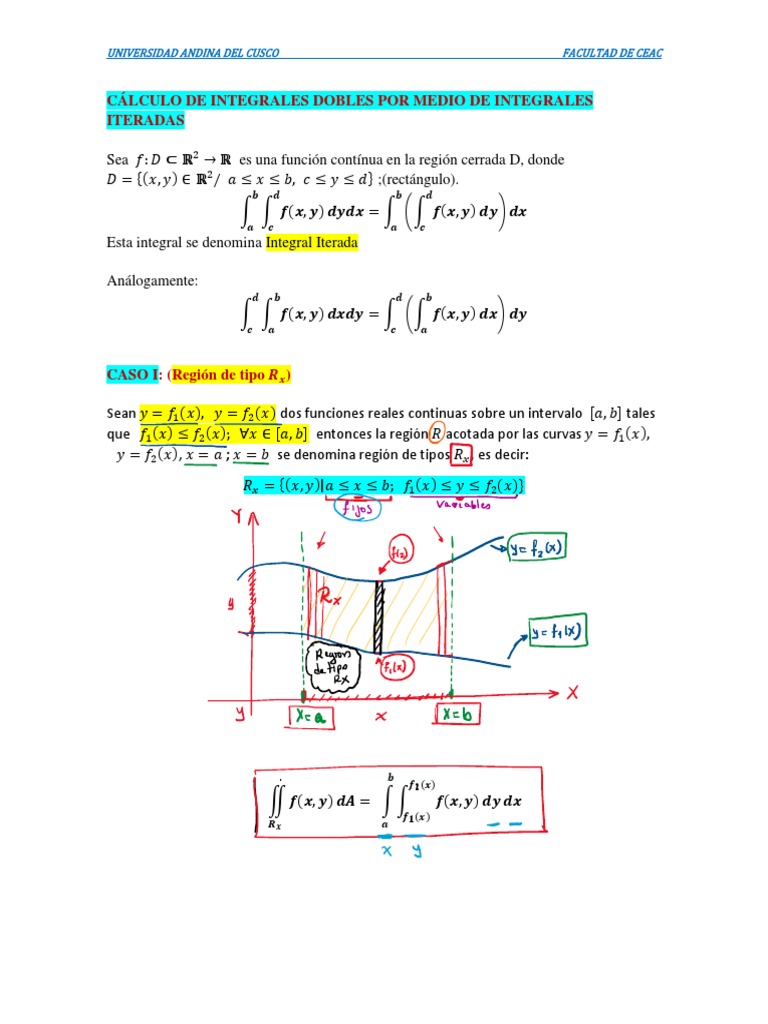 UNIVERSIDAD ANDINA DEL CUSCO FACULTAD DE CEAC
CÁLCULO DE INTEGRALES DOBLES POR MEDIO DE INTEGRALES
ITERADAS
Sea f: D ⊂ ℝ² → ℝ es una función contínua en la región cerrada D, donde
D = {(x, y) ∈ ℝ²/ a ≤ x ≤ b, c ≤ y ≤ d} ;(rectángulo).
∫_a^b ∫_c^d f(x, y) dydx = ∫_a^b (∫_c^d f(x, y) dy) dx
Esta integral se denomina Integral Iterada
Análogamente:
∫_c^d ∫_a^b f(x, y) dxdy = ∫_c^d (∫_a^b f(x, y) dx) dy
CASO I: (Región de tipo Rₓ)
Sean y = f₁(x), y = f₂(x) dos funciones reales continuas sobre un intervalo [a, b] tales
que f₁(x) ≤ f₂(x); ∀x ∈ [a, b] entonces la región R acotada por las curvas y = f₁(x),
y = f₂(x), x = a ; x = b se denomina región de tipos Rₓ, es decir:
Rₓ = {(x, y)|a ≤ x ≤ b; f₁(x) ≤ y ≤ f₂(x)}
fijos variables
Y
f(2)
y = f₂(x)
y
Rx
y = f₁(x)
Region
de tipo
RX
f₁(x)
X
y
X=a
x
X=b
∬_{Rx} f(x, y) dA = ∫_a^b ∫_{f1(x)}^{f2(x)} f(x, y) dy dx
x y